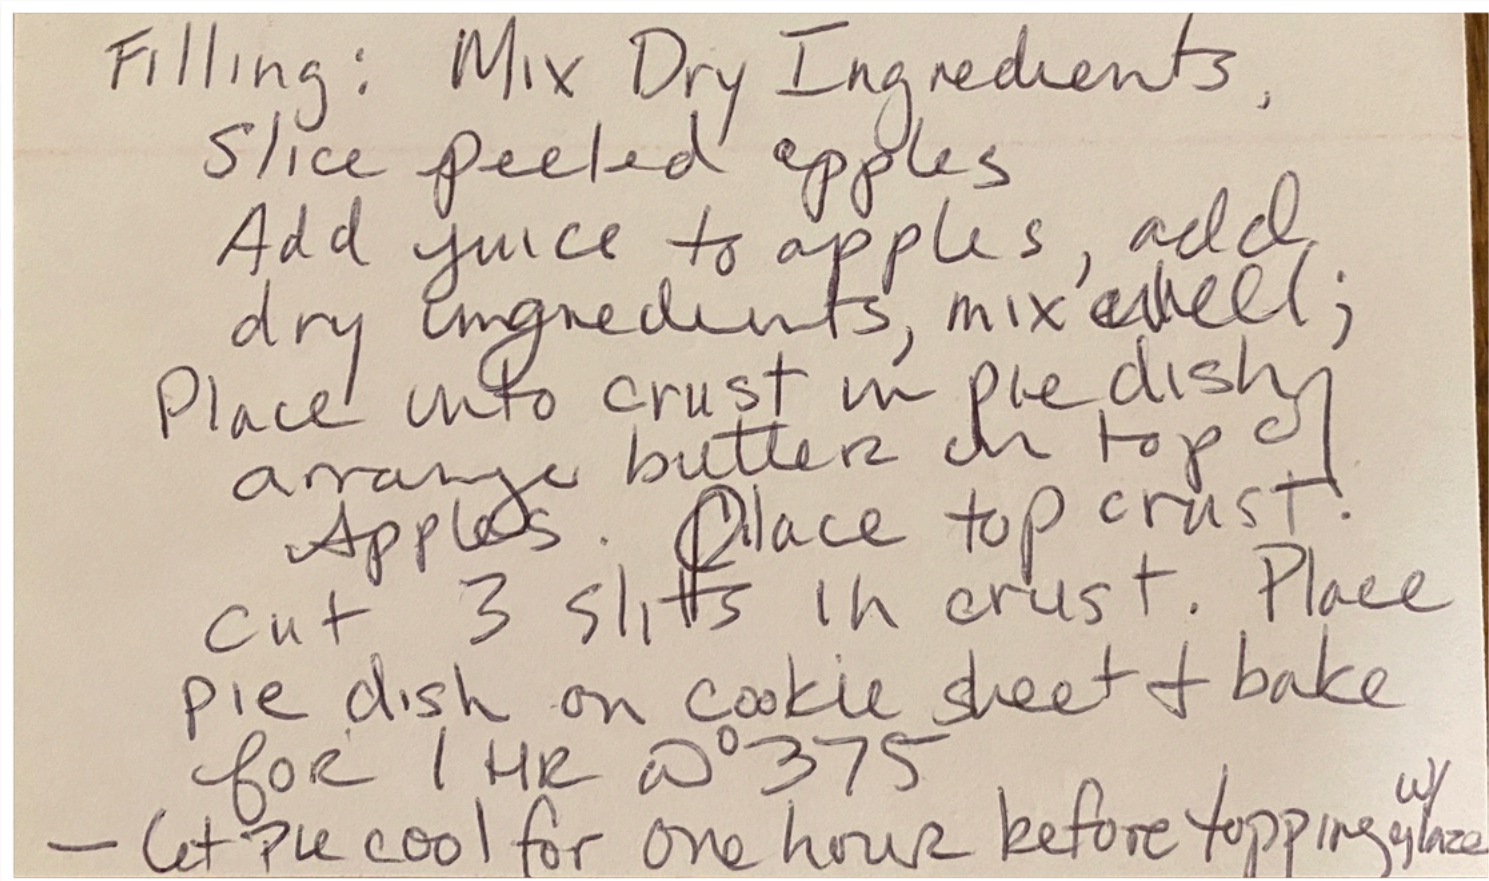 Filling: Mix Dry Ingredients,
Slice peeled apples
Add juice to apples, add
dry ingredients, mix well;
Place into crust in pie dish,
arrange butter on top of
Apples. Place top crust.
cut 3 slits in crust. Place
pie dish on cookie sheet + bake
for 1 HR @ °375
— Let Pie cool for one hour before topping w/ glaze